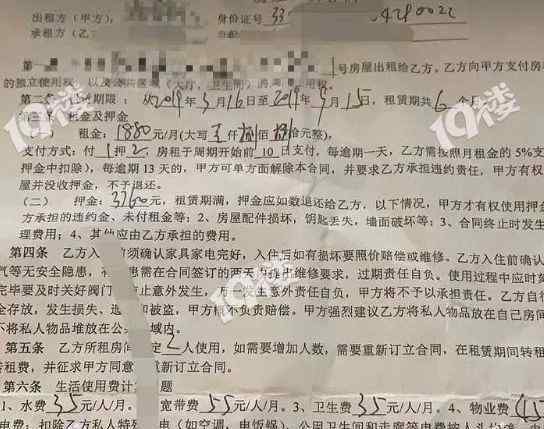 出租方（甲方）， 身份证号 33
承租方（乙
第一 号房屋出租给乙方。乙方向甲方支付房
的独立使用权，以及 （大厅、卫生间）的
第二条 期限： 从2019年3月16日至2019年 月15日，租赁期共6个
第三条 租金及押金
租金：1880元/月(大写 仟 佰 元整)，
支付方式：付1押2，房租于周期开始前10日支付，每逾期一天，乙方需按照月租金的5%支
押金中扣除)，每逾期 13 天的，甲方可单方面解除本合同，并要求乙方承担违约责任，甲方有权
屋并没收押金，不予退还。
（二） 押金：3760元，租赁期满，押金应如数退还给乙方，以下情况，甲方才有权使用押金
方承担的违约金、未付租金等；2、房屋配件损坏，钥匙丢失，墙面破坏等；3、合同终止时发生
理费用；4、其他应由乙方承担的费用。
第四条 乙方入 前须确认家具家电完好，入住后如有损坏要照价赔偿或维修。乙方入住前确认
气等无安全隐患， 患需在合同签订的两天内提出维修要求，过期责任自负。使用过程中应时刻
完毕要及时关好阀门 防止意外发生， 发生意外责任自负，甲方将不予以承担责任。乙方自行
金存放，发生损失、 和被盗，甲方概不负责赔偿，甲方强烈建议乙方将私人物品放在自己房间
不将私人物品堆放在公 域内。
第五条 乙方所租房间 定2人使用，如需要增加人数，需要重新订立合同，在租赁期间转租
转租费，并征求甲方同意 重新订立合同。
第六条 生活使用费计 题
1、水费35元/人/月。 宽带费55元/人/月。3、卫生费35元/人/月。4、物业费
电费：扣除乙方私人特殊 电（如空调，电饭锅）
19楼
19楼
19楼
19楼